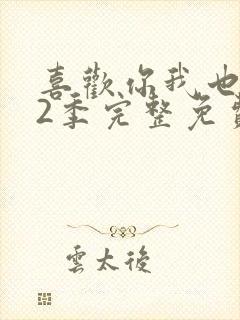 喜歡你我也
2季完整免費
雲太後